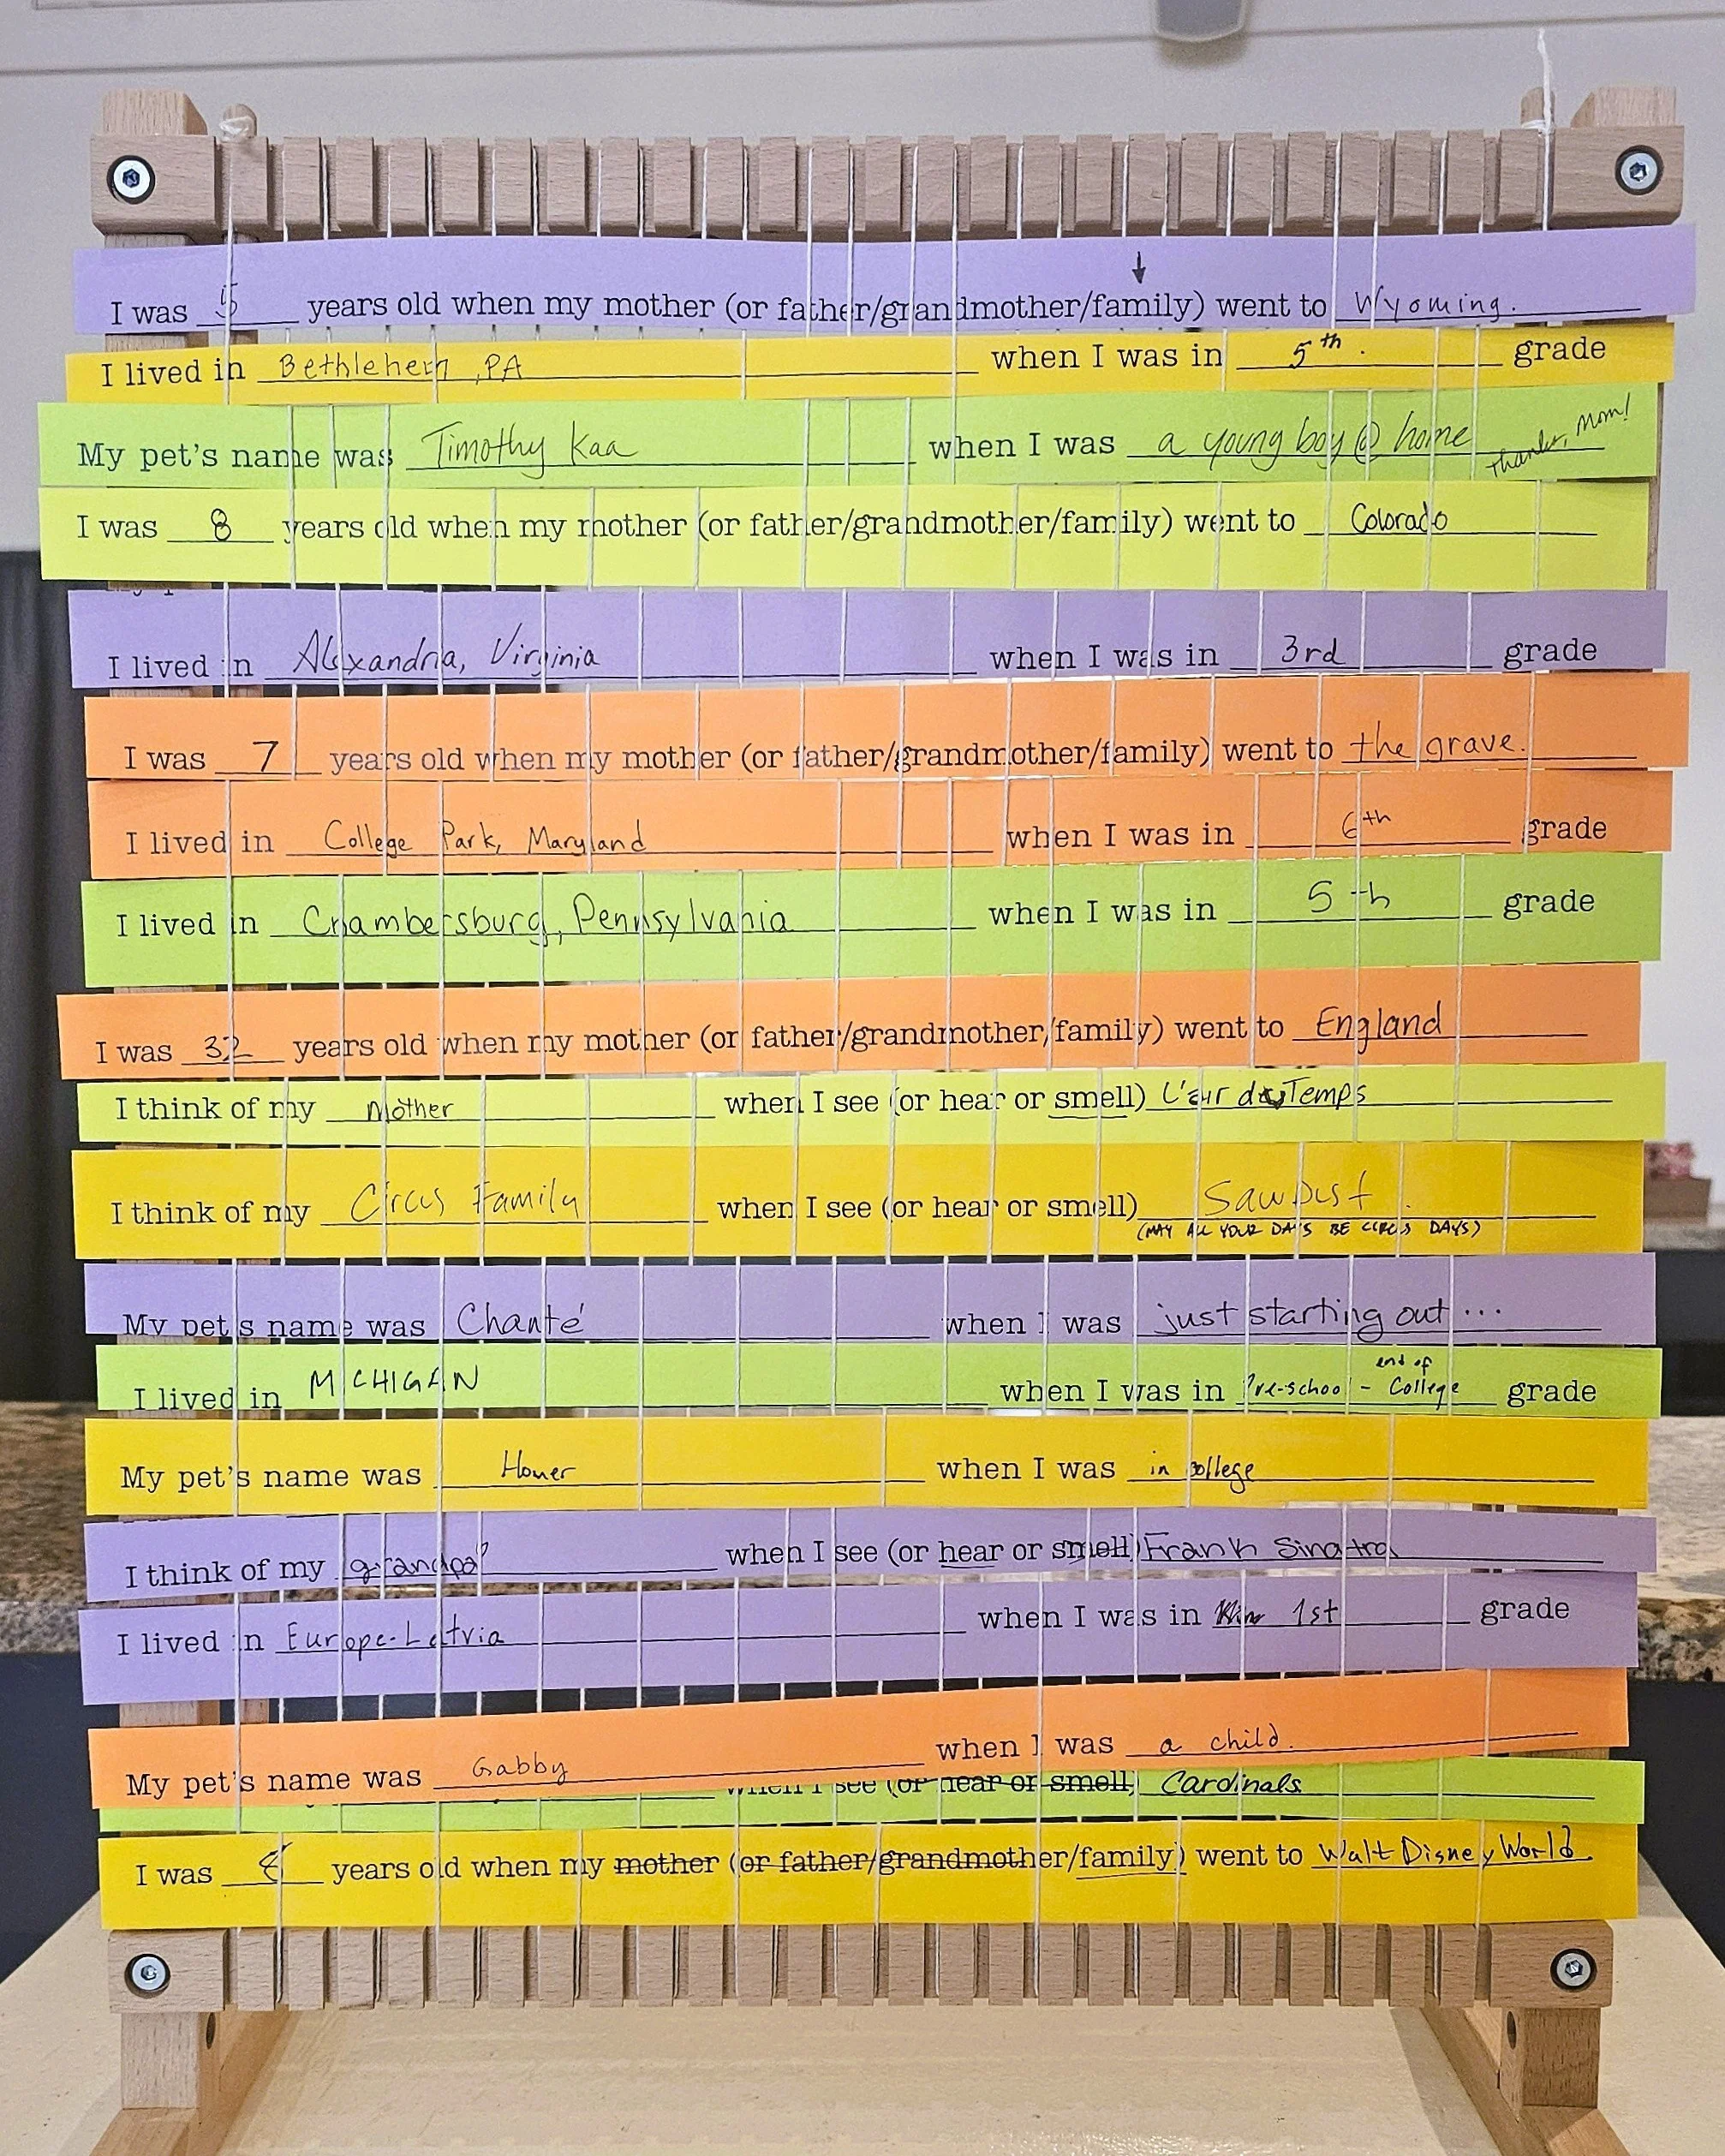 I was 5 years old when my mother (or father/grandmother/family) went to Wyoming.
I lived in Bethlehem, PA when I was in 5th. grade
My pet's name was Timothy Kaa when I was a young boy @ home thanks, Mom!
I was 8 years old when my mother (or father/grandmother/family) went to Colorado
I lived in Alexandria, Virginia when I was in 3rd grade
I was 7 years old when my mother (or father/grandmother/family) went to the grave.
I lived in College Park, Maryland when I was in 6th grade
I lived in Chambersburg, Pennsylvania when I was in 5th grade
I was 32 years old when my mother (or father/grandmother/family) went to England
I think of my Mother when I see (or hear or smell) L'air du Temps
I think of my Circus Family when I see (or hear or smell) Sawdust.
(MAY ALL YOUR DAYS BE CIRCUS DAYS)
My pet's name was Chanté when I was just starting out ...
I lived in MICHIGAN when I was in Pre-school - end of College grade
My pet's name was Homer when I was in college
I think of my grandpa when I see (or hear or smell) Frank Sinatra
I lived in Europe-Latvia when I was in 1st grade
My pet's name was Gabby when I was a child.
when I see (or hear or smell) Cardinals
I was years old when my mother (or father/grandmother/family) went to Walt Disney World.